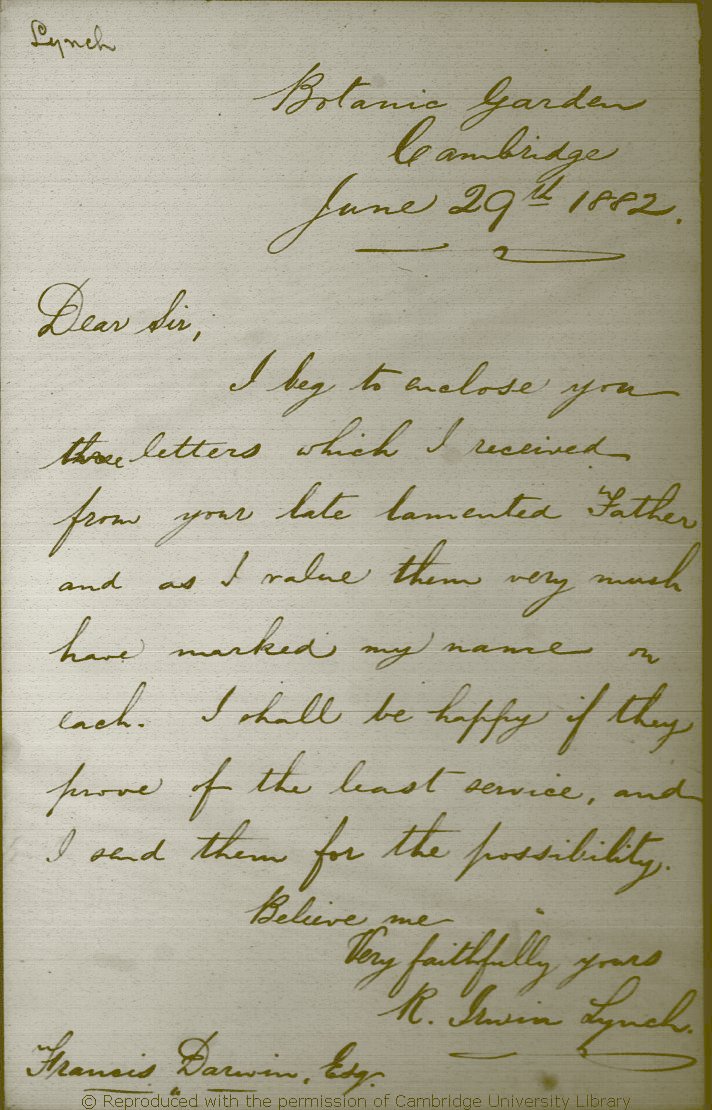 Lynch
Botanic Garden
Cambridge
June 29th 1882.
Dear Sir,
I beg to enclose you
three letters which I received
from your late lamented Father
and as I value them very much
have marked my name on
each. I shall be happy if they
prove of the least service, and
I send them for the possibility.
Believe me
Very faithfully yours
R. Irwin Lynch.
Francis Darwin, Esq.
© Reproduced with the permission of Cambridge University Library